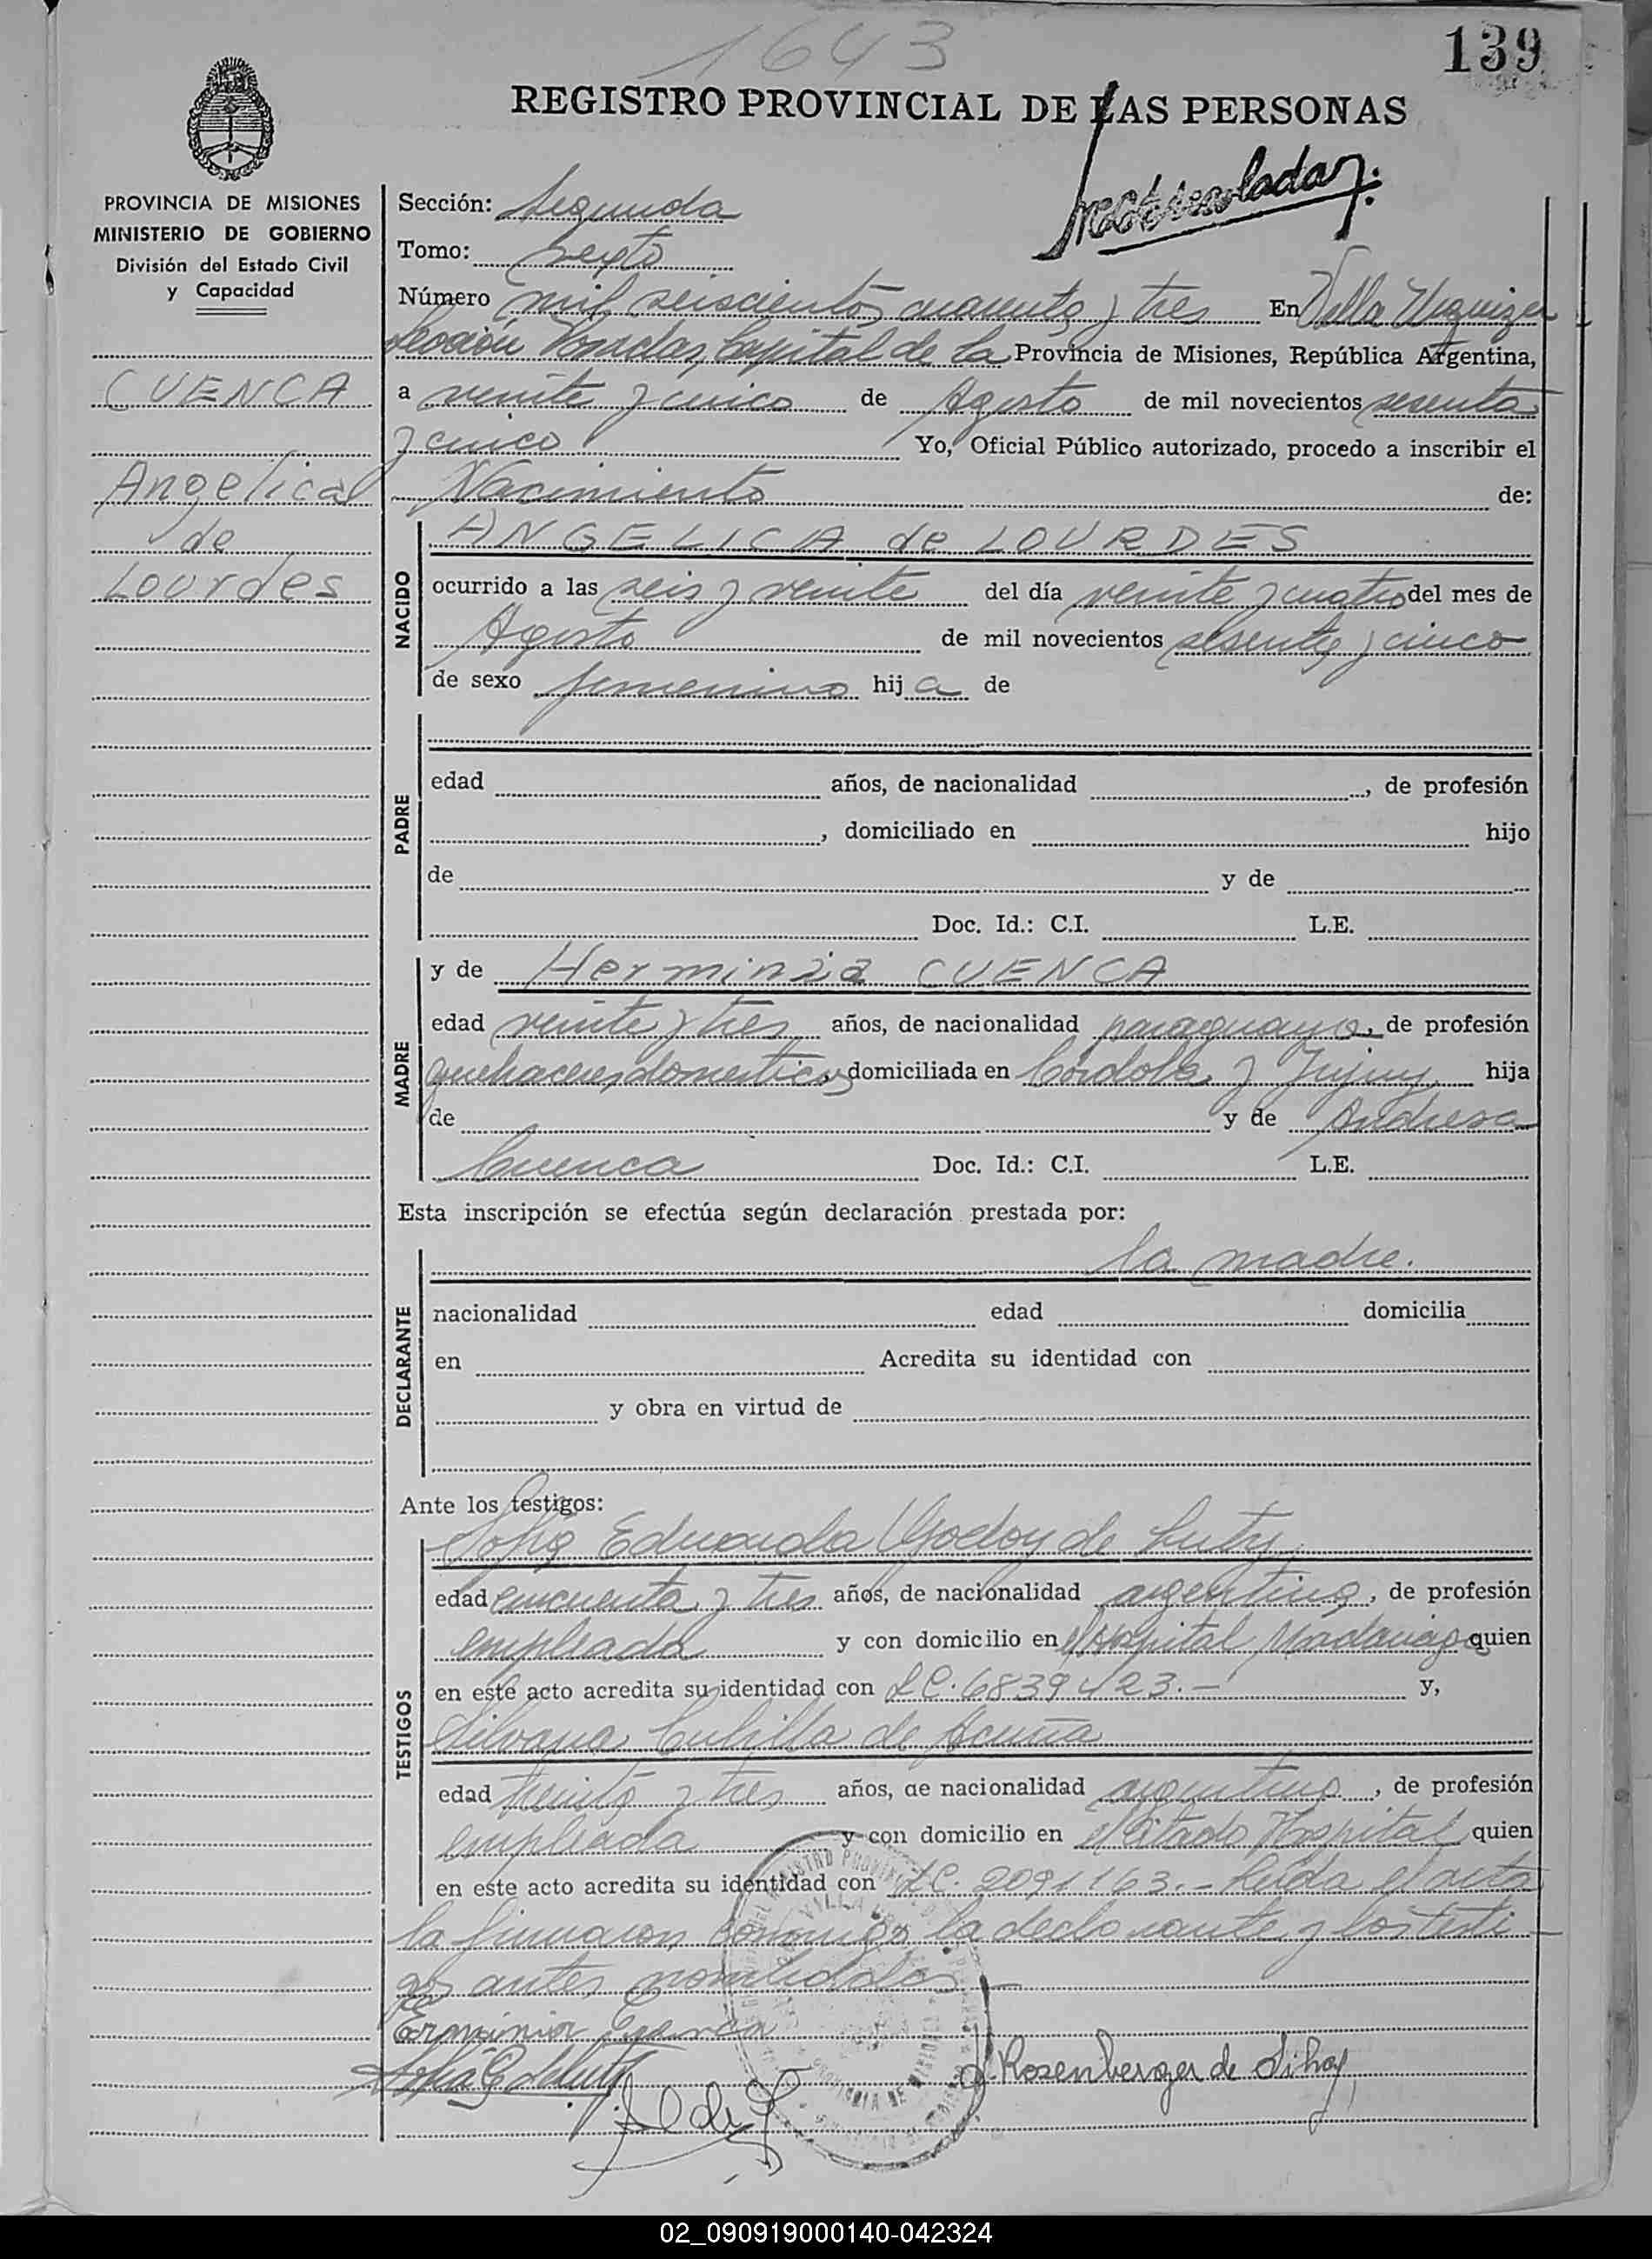 1643
139
REGISTRO PROVINCIAL DE LAS PERSONAS
PROVINCIA DE MISIONES
MINISTERIO DE GOBIERNO
División del Estado Civil
y Capacidad
CUENCA
Angelica
de
Lourdes
Sección: Segunda
Tomo: Sexto
Número mil seiscientos cuarenta y tres En Villa Urquiza
Sección Posadas, Capital de la Provincia de Misiones, República Argentina,
a veinte y cinco de Agosto de mil novecientos sesenta
y cinco Yo, Oficial Público autorizado, procedo a inscribir el
Nacimiento de:
NACIDO
ANGELICA de LOURDES
ocurrido a las seis y veinte del día veinte y cuatro del mes de
Agosto de mil novecientos sesenta y cinco
de sexo femenino hij a de
PADRE
edad años, de nacionalidad , de profesión
, domiciliado en hijo
de y de
Doc. Id.: C.I. L.E.
MADRE
y de Herminia CUENCA
edad veinte y tres años, de nacionalidad paraguaya, de profesión
quehaceres domesticos domiciliada en Córdoba y Jujuy hija
de y de Andresa
Cuenca Doc. Id.: C.I. L.E.
Esta inscripción se efectúa según declaración prestada por:
DECLARANTE
la madre.
nacionalidad edad domicilia
en Acredita su identidad con
y obra en virtud de
Ante los testigos:
TESTIGOS
Sofia Eduarda Godoy de
edad cincuenta y tres años, de nacionalidad argentina, de profesión
empleada y con domicilio en el Hospital Madariaga quien
en este acto acredita su identidad con LC. 6839423.- y,
Silvana Cubilla de Acuña
edad treinta y tres años, de nacionalidad argentina, de profesión
empleada y con domicilio en el citado Hospital quien
en este acto acredita su identidad con LC. 2091163.- Leída el acta
la firmaron conmigo la declarante y los testi
gos antes nombrados
Erminia Cuenca
Rosenberger de
02_090919000140-042324